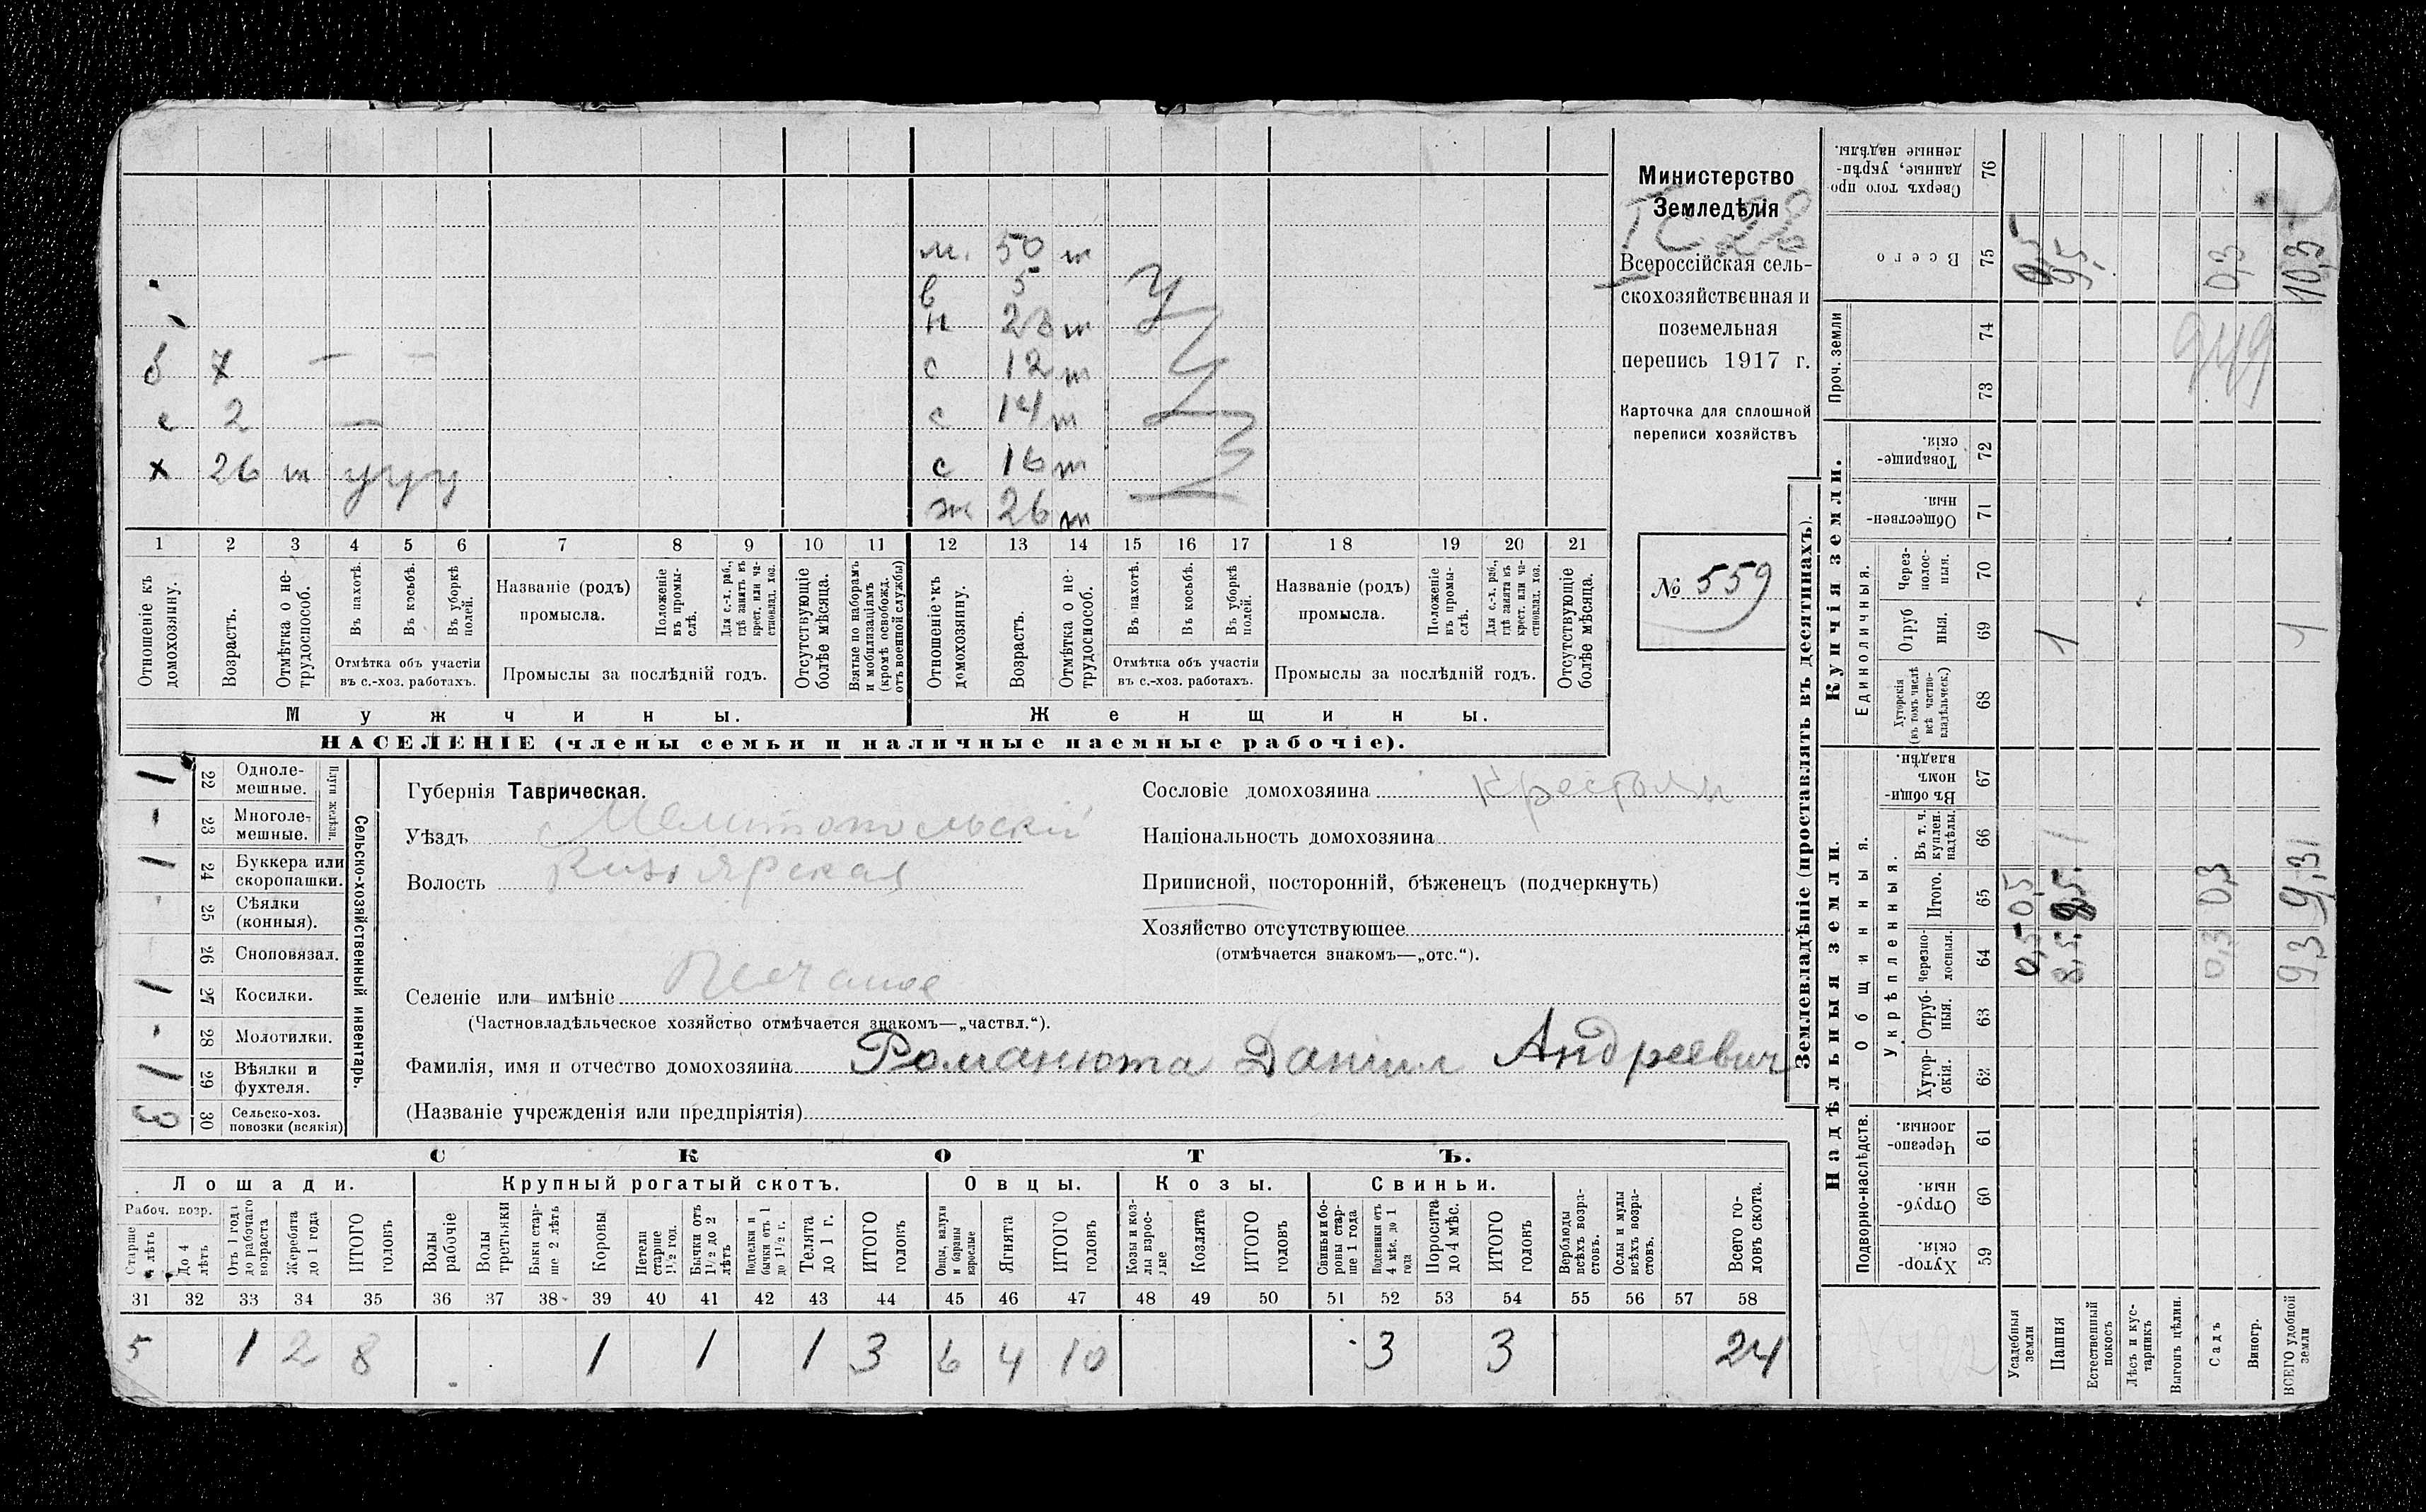 м. 50 т
в 5
н 23 т
б х с 12 т
с 2 с 14 т
с 16 т
х 26 т у у у
ж 26 т
1 2 3 4 5 6 7 8 9 10 11 12 13 14 15 16 17 18 19 20 21
Отношеніе къ домохозяину.
Возрастъ.
Отмѣтка о не-
трудоспособ.
Въ пахотѣ.
Въ косьбѣ.
Въ уборкѣ полей.
Отмѣтка объ участіи
въ с.-хоз. работахъ.
Названіе (родъ)
промысла.
Положеніе
въ промы-
слѣ.
Для с.-х. раб.,
гдѣ занятъ въ
крест. или ча-
стновлад. хоз.
Промыслы за послѣдній годъ.
Отсутствующіе
болѣе мѣсяца.
Взятые по наборамъ
и мобилизаціямъ
(кромѣ освобожд.
отъ военной службы)
Отношеніе къ
домохозяину.
Возрастъ.
Отмѣтка о не-
трудоспособ.
Въ пахотѣ.
Въ косьбѣ.
Въ уборкѣ
полей.
Отмѣтка объ участіи
въ с.-хоз. работахъ.
Названіе (родъ)
промысла.
Положеніе
въ промы-
слѣ.
Для с.-х. раб.,
гдѣ занята въ
крест. или ча-
стновлад. хоз.
Промыслы за послѣдній годъ.
Отсутствующіе
болѣе мѣсяца.
Мужчины.
Женщины.
НАСЕЛЕНІЕ (члены семьи и наличные наемные рабочіе).
Министерство
Земледѣлія
Всероссійская сель-
скохозяйственная и
поземельная
перепись 1917 г.
Карточка для сплошной
переписи хозяйствъ
№ 559
1 22 Одноле-
мешные.
- 23 Многоле-
мешные.
1 24 Буккера или
скоропашки.
25 Сѣялки
(конныя).
26 Сноповязал.
1 27 Косилки.
- 28 Молотилки.
1 29 Вѣялки и
фухтеля.
3 30 Сельско-хоз.
повозки (всякія)
Сельско-хозяйственный инвентарь.
Губернія Таврическая.
Уѣздъ Мелитопольскій
Волость Кизіярская
Селеніе или имѣніе Песчаное
(Частновладѣльческое хозяйство отмѣчается знакомъ—„частвл.“).
Фамилія, имя и отчество домохозяина Романюта Даніил Андреевич
(Названіе учрежденія или предпріятія)
Сословіе домохозяина крестьян
Національность домохозяина
Приписной, посторонній, бѣженецъ (подчеркнуть)
Хозяйство отсутствующее
(отмѣчается знакомъ—„отс.“).
СКОТЪ.
Лошади. Крупный рогатый скотъ. Овцы. Козы. Свиньи.
Рабоч. возр.
Старше
4 лѣтъ
До 4
лѣтъ
Отъ 1 года
до рабочаго
возраста
Жеребята
до 1 года
ИТОГО
головъ
Волы
рабочіе
Волы
третьяки
Быки стар-
ше 2 лѣтъ
Коровы
Нетели
старше
1½ год.
Бычки отъ
1½ до 2
лѣтъ
Подтелки и
бычки отъ 1
до 1½ г.
Телята
до 1 г.
ИТОГО
головъ
Овцы, валухи
и бараны
взрослые
Ягнята
ИТОГО
головъ
Козы и коз-
лы взрос-
лые
Козлята
ИТОГО
головъ
Свиньи и бо-
ровы стар-
ше 1 года
Подсвинки отъ
4 мѣс. до 1
года
Поросята
до 4 мѣс.
ИТОГО
головъ
Верблюды
всѣхъ возра-
стовъ.
Ослы и мулы
всѣхъ возра-
стовъ.
Всего го-
ловъ скота.
31 32 33 34 35 36 37 38 39 40 41 42 43 44 45 46 47 48 49 50 51 52 53 54 55 56 57 58
5 1 2 8 1 1 1 3 6 4 10 3 3 24
Землевладѣніе (проставлять въ десятинахъ).
Надѣльныя земли.
Купчія земли.
Проч. земли
Подворно-наслѣдств.
Общинныя.
Укрѣпленныя.
Единоличныя.
Хутор-
скія. 59
Отруб-
ныя. 60
Черезпо-
лосныя. 61
Хутор-
скія. 62
Отруб-
ныя. 63
Черезпо-
лосныя. 64
Итого. 65
Въ т. ч.
куплен.
надѣлы. 66
Въ общи-
номъ
владѣн. 67
Хуторскія
(въ томъ числѣ
всѣ частно-
владѣльческ.) 68
Отруб
ныя. 69
Через-
полос-
ныя. 70
Обществен-
ныя. 71
Товарище-
скія. 72
73
74
Всего 75
Сверхъ того про
данные, укрѣп-
ленные надѣлы. 76
Усадебныя
земли 0,5 0,5 0,5
Пашня 8,5 8,5 1 1 9,5
Естественный
покосъ
Лѣсъ и кус-
тарникъ
Выгонъ цѣлин.
Садъ 0,3 0,3 0,3
Виногр.
ВСЕГО удобной
земли 9,3 9,3 1 1 10,3
949